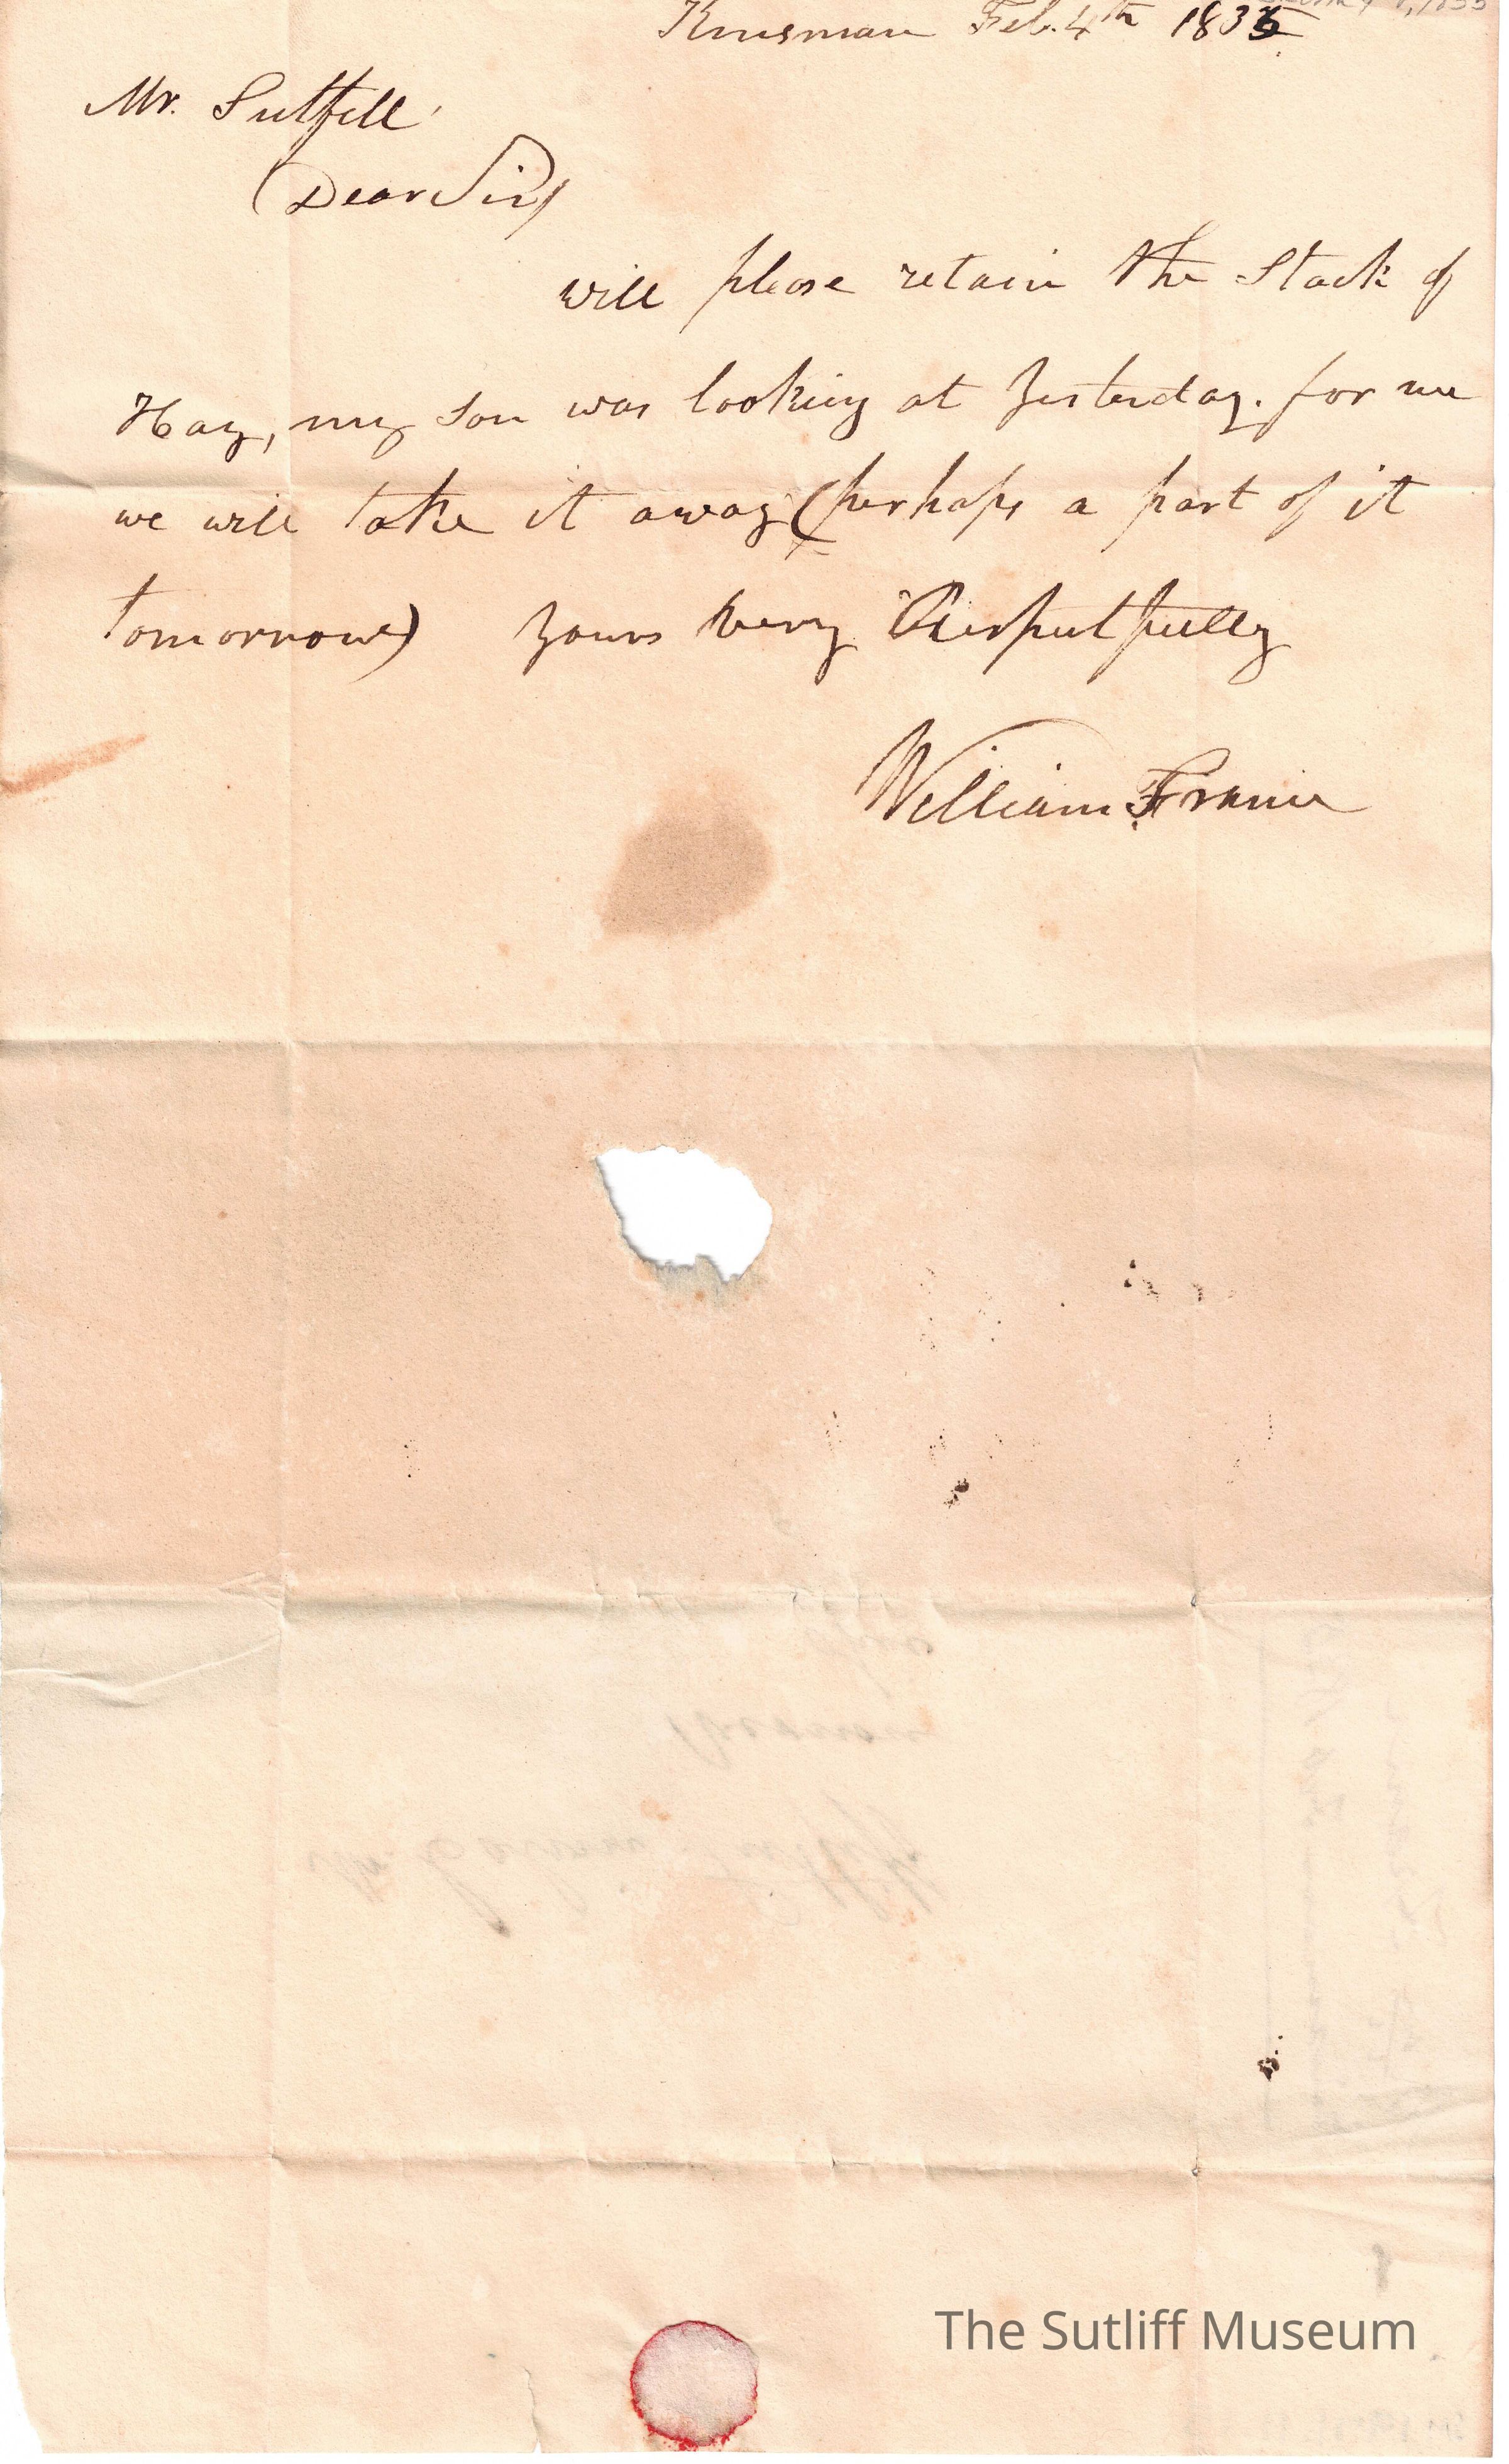 Kinsman Feb. 4th 1835
Mr. Sutfill
(Dear Sir)
will please retain the Stack of
Hay, my son was looking at Yesterday. for me
we will take it away (perhaps a part of it
tomorrow) Yours Very Respectfully
William
The Sutliff Museum